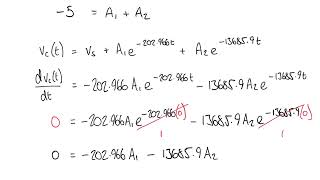 -5 = A₁ + A₂
v꜀(t) = vₛ + A₁e^-202.966t + A₂e^-13685.9t
dv꜀(t)/dt = -202.966A₁e^-202.966t - 13685.9A₂e^-13685.9t
0 = -202.966A₁e^-202.966(0) - 13685.9A₂e^-13685.9(0)
1 1
0 = -202.966A₁ - 13685.9A₂